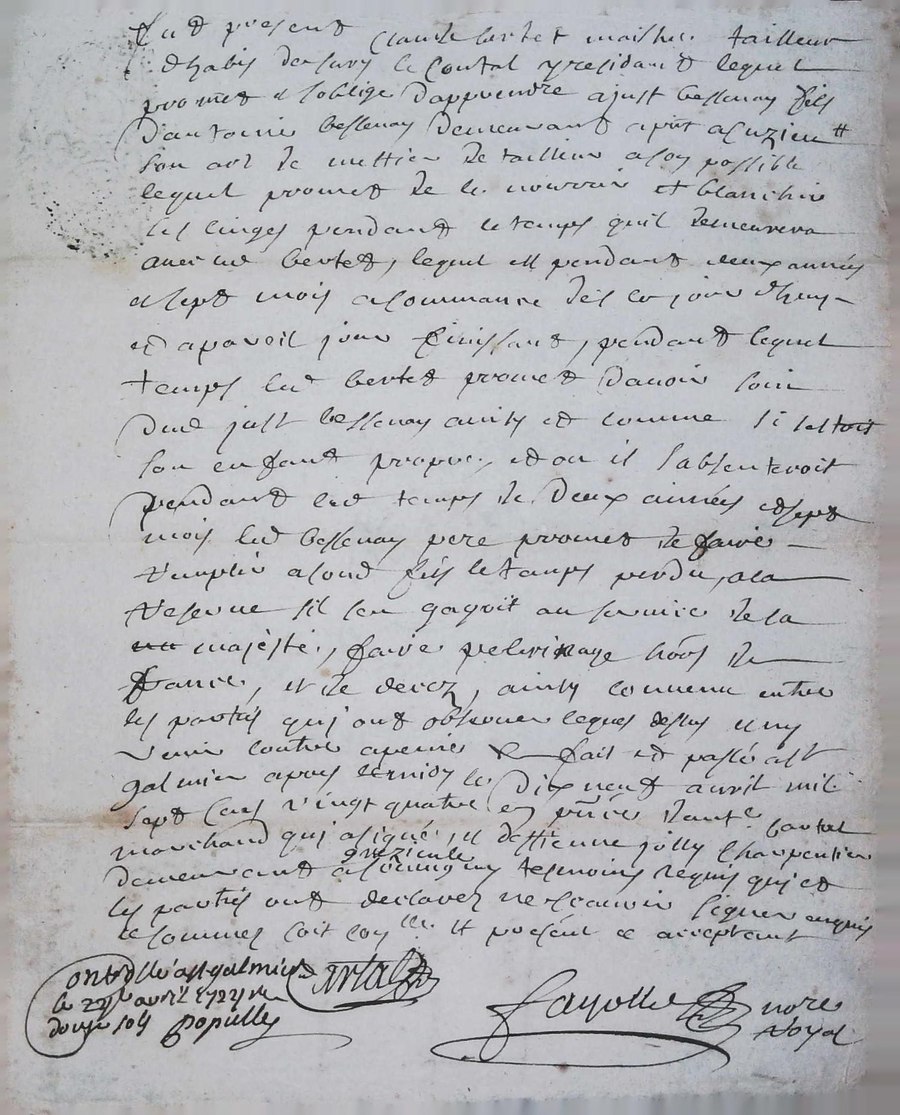 Fut present Claude bertet maistre tailleur
d'habis de sury le Contal y residant lequel
promet et s'oblige d'apprendre a just bessenay fils
d'antoine bessenay demeurant a
son art de mettier de tailleur a son possible
lequel promet de le nourrir et blanchir
ses linges pendant le temps quil demeurera
avec led bertet, lequel est pendant deux années
et sept mois a commance dès ce jour dhuy
et a pareil jour finissant, pendant lequel
temps led bertet promet d'avoir soin
dud just bessenay ainsy et comme si sestoit
son enfant propre, et ou il sabsenteroit
pendant led temps de deux années et sept
mois led bessenay pere promet de faire
remplir a sond fils le temps perdu, a la
reserve sil sen gagoit au service de sa
majesté, faire pelerinage hors de
france, et de decez, ainsy convenu entre
les parties qui ont observer
venir contre a peine & fait et passé a st
galmier apres le dix neuf avril mil
sept cens vingt quatre en
marchand qui a signé, et d'estienne jolly charpentier
demeurant a tesmoins requis qui et
les parties ont declarez ne scavoir signer enquis
et sommes soit et présent ce acceptant
Controllé a st galmier
le avril 1724
douze sols Populle
fayolle nore
Royal